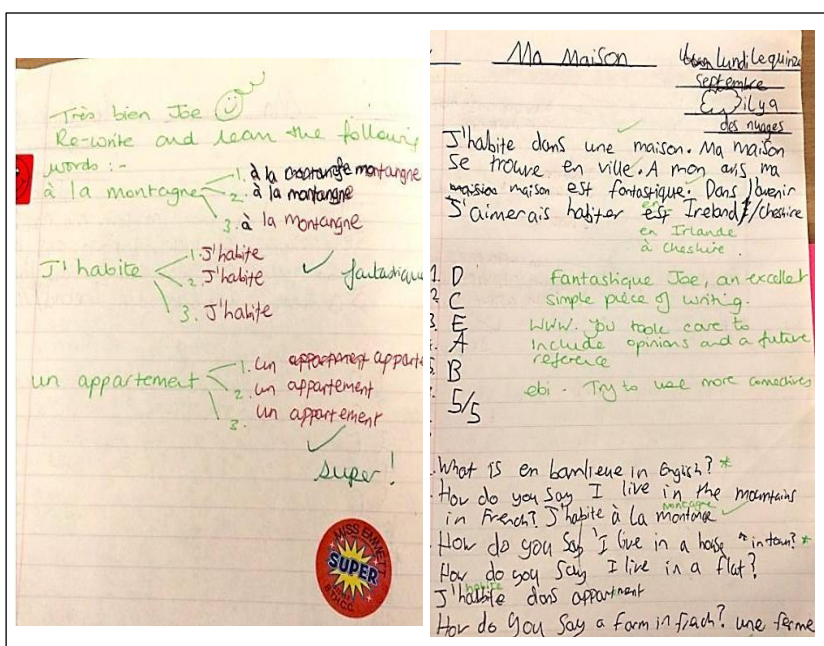 Très bien Joe
Re-write and learn the following
words :-
à la montagne
1. à la montangne
2. à la montangne
3. à la montangne
J'habite
1. J'habite
2. J'habite
3. J'habite
fantastique
un appartement
1. un apparte
2. un appartement
3. un appartement
super!
MISS EMMETT
SUPER
Ma Maison
lundi le quinze
septembre
il y a
des nuages
J'habite dans une maison. Ma maison
se trouve en ville. A mon avis ma
maison est fantastique. Dans l'avenir
J'aimerais habiter est Ireland/Cheshire
en
en Irlande
à Cheshire
1. D
2. C
3. E
A
B
5/5
Fantastique Joe, an excellent
simple piece of writing.
WWW. You took care to
include opinions and a future
reference
ebi - Try to use more connectives
What is en banlieue in English? *
How do you say I live in the mountains
in French? J'habite à la montange
montagne
How do you say 'I live in a house in town? *
How do you say I live in a flat?
habite
J'habbite dans appartment
How do you say a farm in french? une ferme